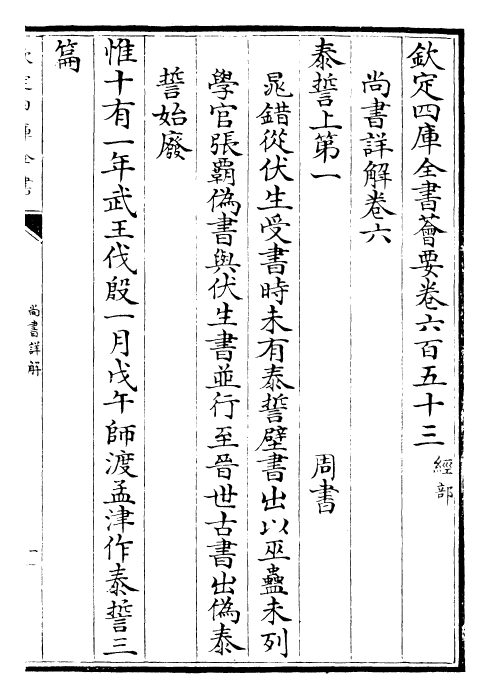 欽定四庫全書薈要卷六百五十三 經部
尚書詳解卷六
泰誓上第一 周書
晁錯從伏生受書時未有泰誓壁書出以巫蠱未列
學官張霸偽書與伏生書並行至晉世古書出偽泰
誓始廢
惟十有一年武王伐殷一月戊午師渡孟津作泰誓三
篇
尚書詳解
一